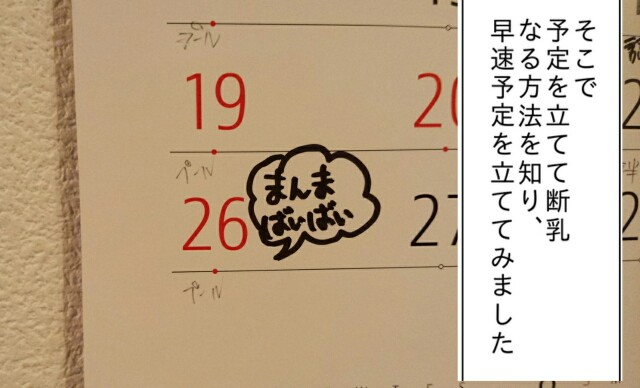 そこで
予定を立てて断乳
なる方法を知り、
早速予定を立ててみました
プール
19
20
プール
まんま
ばいばい
26
27
プール